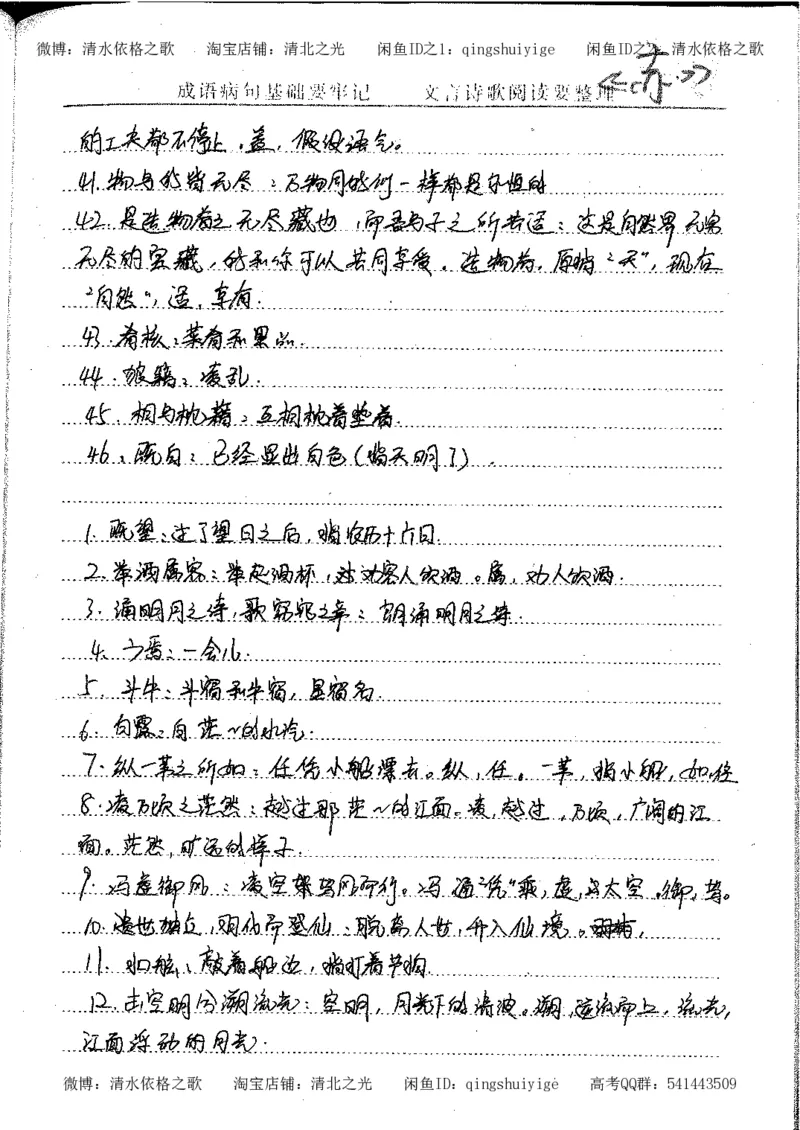 微博：清水依格之歌 淘宝店铺：清北之光 闲鱼ID之1：qingshuiyige 闲鱼ID之2：清水依格之歌
成语病句基础要牢记 文言诗歌阅读要整理
的工夫都不停止。盖，假设语气。
41.物与我皆无尽：万物同我们一样都是永恒的
42.是造物者之无尽藏也，而吾与子之所共适：这是自然界无穷
无尽的宝藏，我和你可以共同享受。造物者，原指“天”，现在
“自然”，适，享有.
43.肴核：菜肴和果品.
44.狼籍：凌乱.
45.相与枕藉：互相枕着垫着.
46、既白：已经显出白色（指天明了）.
1.既望：过了望日之后，指农历十六日.
2.举酒属客：举起酒杯，对劝客人饮酒。属，劝人饮酒.
3.诵明月之诗，歌窈窕之章：朗诵明月之诗.
4、少焉：一会儿.
5、斗牛：斗宿和牛宿，星宿名.
6、白露：白茫~的水汽.
7.纵一苇之所如：任凭小船漂去。纵，任。一苇，指小船，如，往
8.凌万顷之茫然：越过那茫~的江面。凌，越过，万顷，广阔的江
面。茫然，旷远的样子.
9.冯虚御风：凌空驾风而行。冯通“凭”乘，虚，太空，御，驾。
10.遗世独立，羽化而登仙：脱离人世，升入仙境。
11.扣舷：敲着船边，指打着节拍.
12.击空明兮溯流光：空明，月光下的清波。溯，逆流而上，流光，
江面浮动的月光.
微博：清水依格之歌 淘宝店铺：清北之光 闲鱼ID：qingshuiyige 高考QQ群：541443509